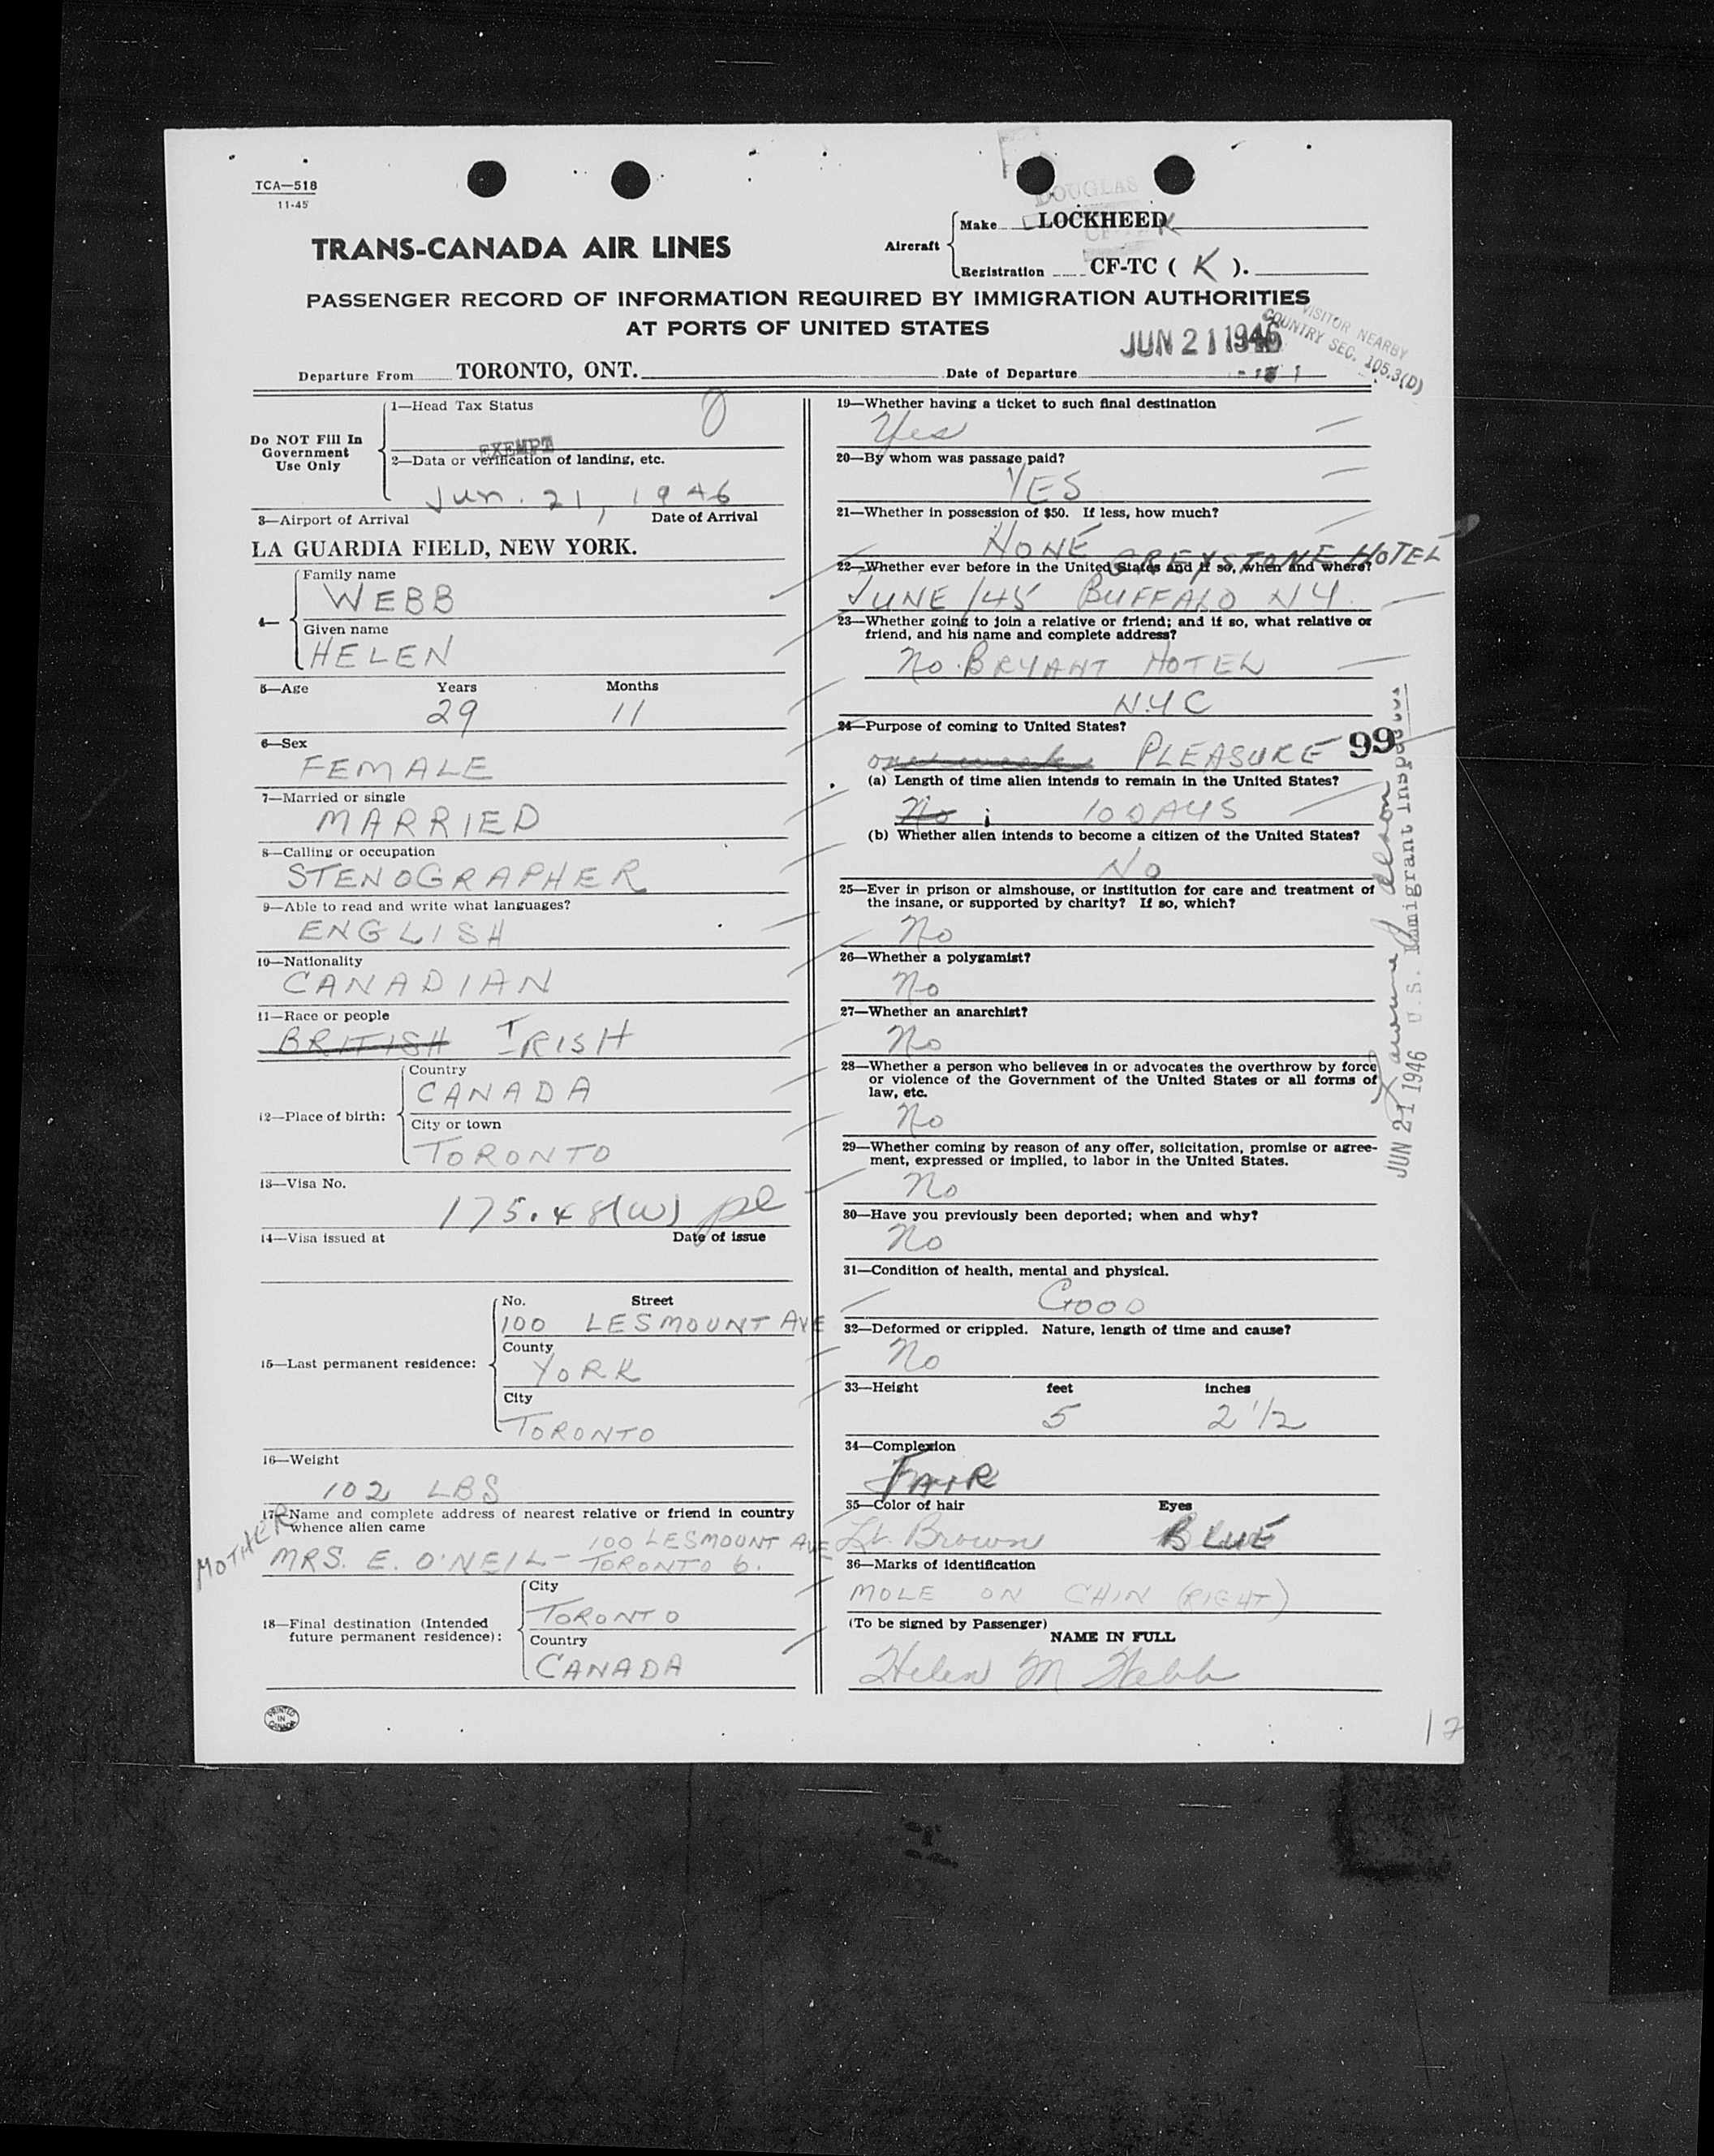 TCA—518
11-45
DOUGLAS
TRANS-CANADA AIR LINES
Aircraft
Make LOCKHEED
Registration CF-TC ( K ).
PASSENGER RECORD OF INFORMATION REQUIRED BY IMMIGRATION AUTHORITIES
AT PORTS OF UNITED STATES
JUN 21 1946
VISITOR NEARBY
COUNTRY SEC. 105.3(D)
Departure From TORONTO, ONT.
Date of Departure
Do NOT Fill In
Government
Use Only
1—Head Tax Status
EXEMPT
2—Data or verification of landing, etc.
Jun. 21, 1946
3—Airport of Arrival Date of Arrival
LA GUARDIA FIELD, NEW YORK.
4—
Family name
WEBB
Given name
HELEN
5—Age Years Months
29 11
6—Sex
FEMALE
7—Married or single
MARRIED
8—Calling or occupation
STENOGRAPHER
9—Able to read and write what languages?
ENGLISH
10—Nationality
CANADIAN
11—Race or people
BRITISH IRISH
12—Place of birth:
Country
CANADA
City or town
TORONTO
13—Visa No.
175.48(W)
14—Visa issued at Date of issue
15—Last permanent residence:
No. Street
100 LESMOUNT AVE
County
YORK
City
TORONTO
16—Weight
102 LBS
17—Name and complete address of nearest relative or friend in country
whence alien came
MOTHER
100 LESMOUNT AVE
MRS. E. O'NEIL — TORONTO 6.
18—Final destination (Intended
future permanent residence):
City
TORONTO
Country
CANADA
PRINTED
IN
CANADA
19—Whether having a ticket to such final destination
Yes
20—By whom was passage paid?
YES
21—Whether in possession of $50. If less, how much?
NONE
GREYSTONE HOTEL
22—Whether ever before in the United States and if so, when and where?
JUNE /45 BUFFALO NY
23—Whether going to join a relative or friend; and if so, what relative or
friend, and his name and complete address?
No. BRYANT HOTEL
N.Y C
24—Purpose of coming to United States?
one week PLEASURE
99
(a) Length of time alien intends to remain in the United States?
No 10 DAYS
(b) Whether alien intends to become a citizen of the United States?
NO
25—Ever in prison or almshouse, or institution for care and treatment of
the insane, or supported by charity? If so, which?
No
26—Whether a polygamist?
No
27—Whether an anarchist?
No
28—Whether a person who believes in or advocates the overthrow by force
or violence of the Government of the United States or all forms of
law, etc.
No
29—Whether coming by reason of any offer, solicitation, promise or agree-
ment, expressed or implied, to labor in the United States.
No
30—Have you previously been deported; when and why?
No
31—Condition of health, mental and physical.
GOOD
32—Deformed or crippled. Nature, length of time and cause?
No
33—Height feet inches
5 2 1/2
34—Complexion
FAIR
35—Color of hair Eyes
Lt. Brown BLUE
36—Marks of identification
MOLE ON CHIN (RIGHT)
(To be signed by Passenger)
NAME IN FULL
Helen M Webb
JUN 21 1946 U.S. Immigrant Inspector
12